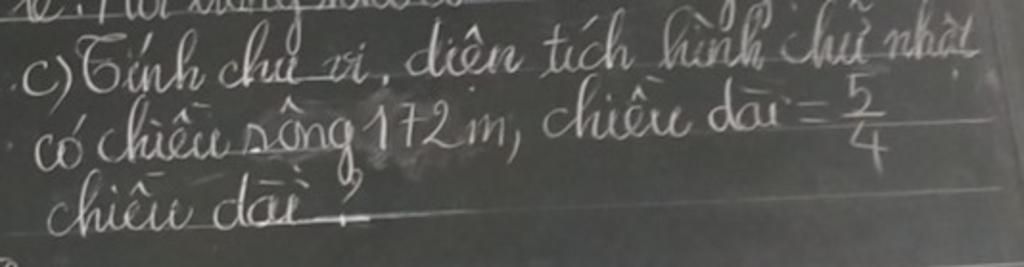 c) Tính chu vi, diện tích hình chữ nhật
có chiều rông 172m, chiều dài = 5/4
chiều dài ?